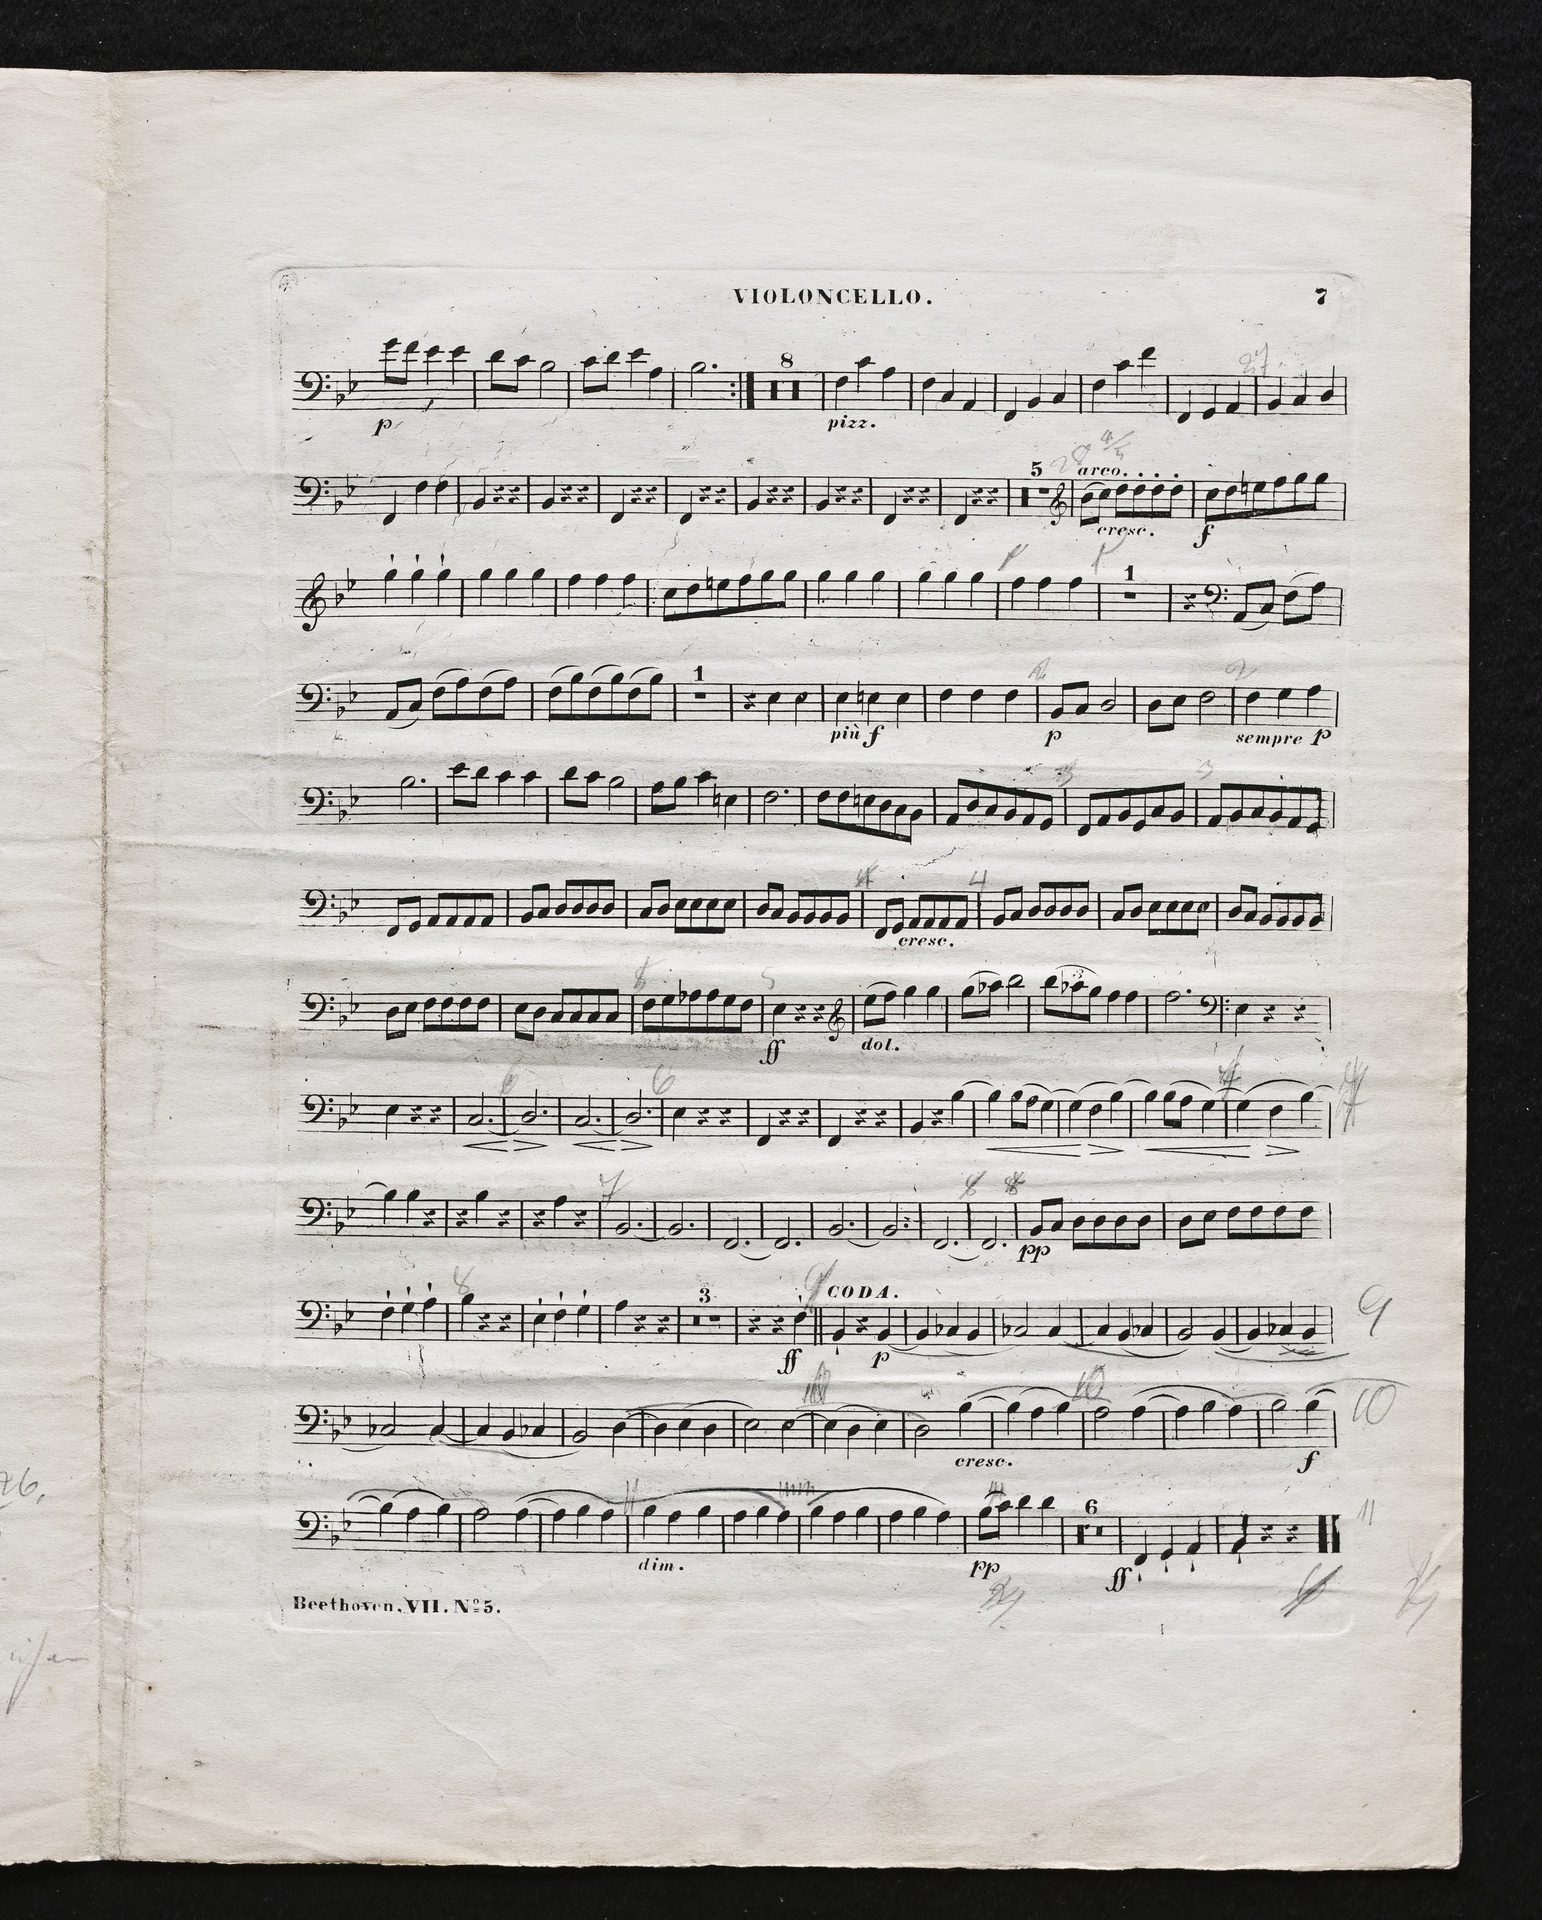 VIOLONCELLO. 7
8
27.
p pizz.
5 28 arco.
cresc. f
1
1
2 2
più f p sempre p
3 3
4 4
cresc.
5 3
ff dol.
6 6
7 8 8
pp
8 3 9 CODA. 9
ff p
10 10
cresc. f
11 11
6
dim. pp ff
26,
Beethoven. VII. Nº 5.